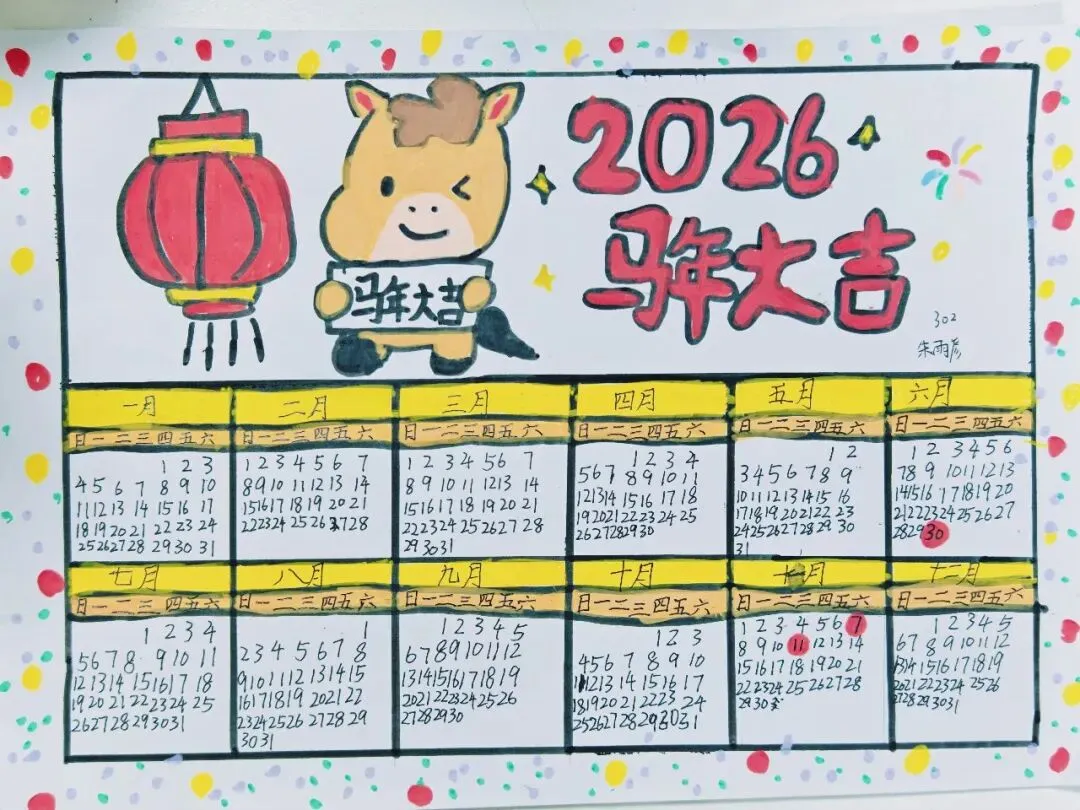 2026
马年大吉
马年大吉
302
朱雨彦
一月
日一二三四五六
1 2 3
4 5 6 7 8 9 10
11 12 13 14 15 16 17
18 19 20 21 22 23 24
25 26 27 28 29 30 31
二月
日一二三四五六
1 2 3 4 5 6 7
8 9 10 11 12 13 14
15 16 17 18 19 20 21
22 23 24 25 26 27 28
三月
日一二三四五六
1 2 3 4 5 6 7
8 9 10 11 12 13 14
15 16 17 18 19 20 21
22 23 24 25 26 27 28
29 30 31
四月
日一二三四五六
1 2 3 4
5 6 7 8 9 10 11
12 13 14 15 16 17 18
19 20 21 22 23 24 25
26 27 28 29 30
五月
日一二三四五六
1 2
3 4 5 6 7 8 9
10 11 12 13 14 15 16
17 18 19 20 21 22 23
24 25 26 27 28 29 30
31
六月
日一二三四五六
1 2 3 4 5 6
7 8 9 10 11 12 13
14 15 16 17 18 19 20
21 22 23 24 25 26 27
28 29 30
七月
日一二三四五六
1 2 3 4
5 6 7 8 9 10 11
12 13 14 15 16 17 18
19 20 21 22 23 24 25
26 27 28 29 30 31
八月
日一二三四五六
1
2 3 4 5 6 7 8
9 10 11 12 13 14 15
16 17 18 19 20 21 22
23 24 25 26 27 28 29
30 31
九月
日一二三四五六
1 2 3 4 5
6 7 8 9 10 11 12
13 14 15 16 17 18 19
20 21 22 23 24 25 26
27 28 29 30
十月
日一二三四五六
1 2 3
4 5 6 7 8 9 10
11 12 13 14 15 16 17
18 19 20 21 22 23 24
25 26 27 28 29 30 31
十一月
日一二三四五六
1 2 3 4 5 6 7
8 9 10 11 12 13 14
15 16 17 18 19 20 21
22 23 24 25 26 27 28
29 30
十二月
日一二三四五六
1 2 3 4 5
6 7 8 9 10 11 12
13 14 15 16 17 18 19
20 21 22 23 24 25 26
27 28 29 30 31